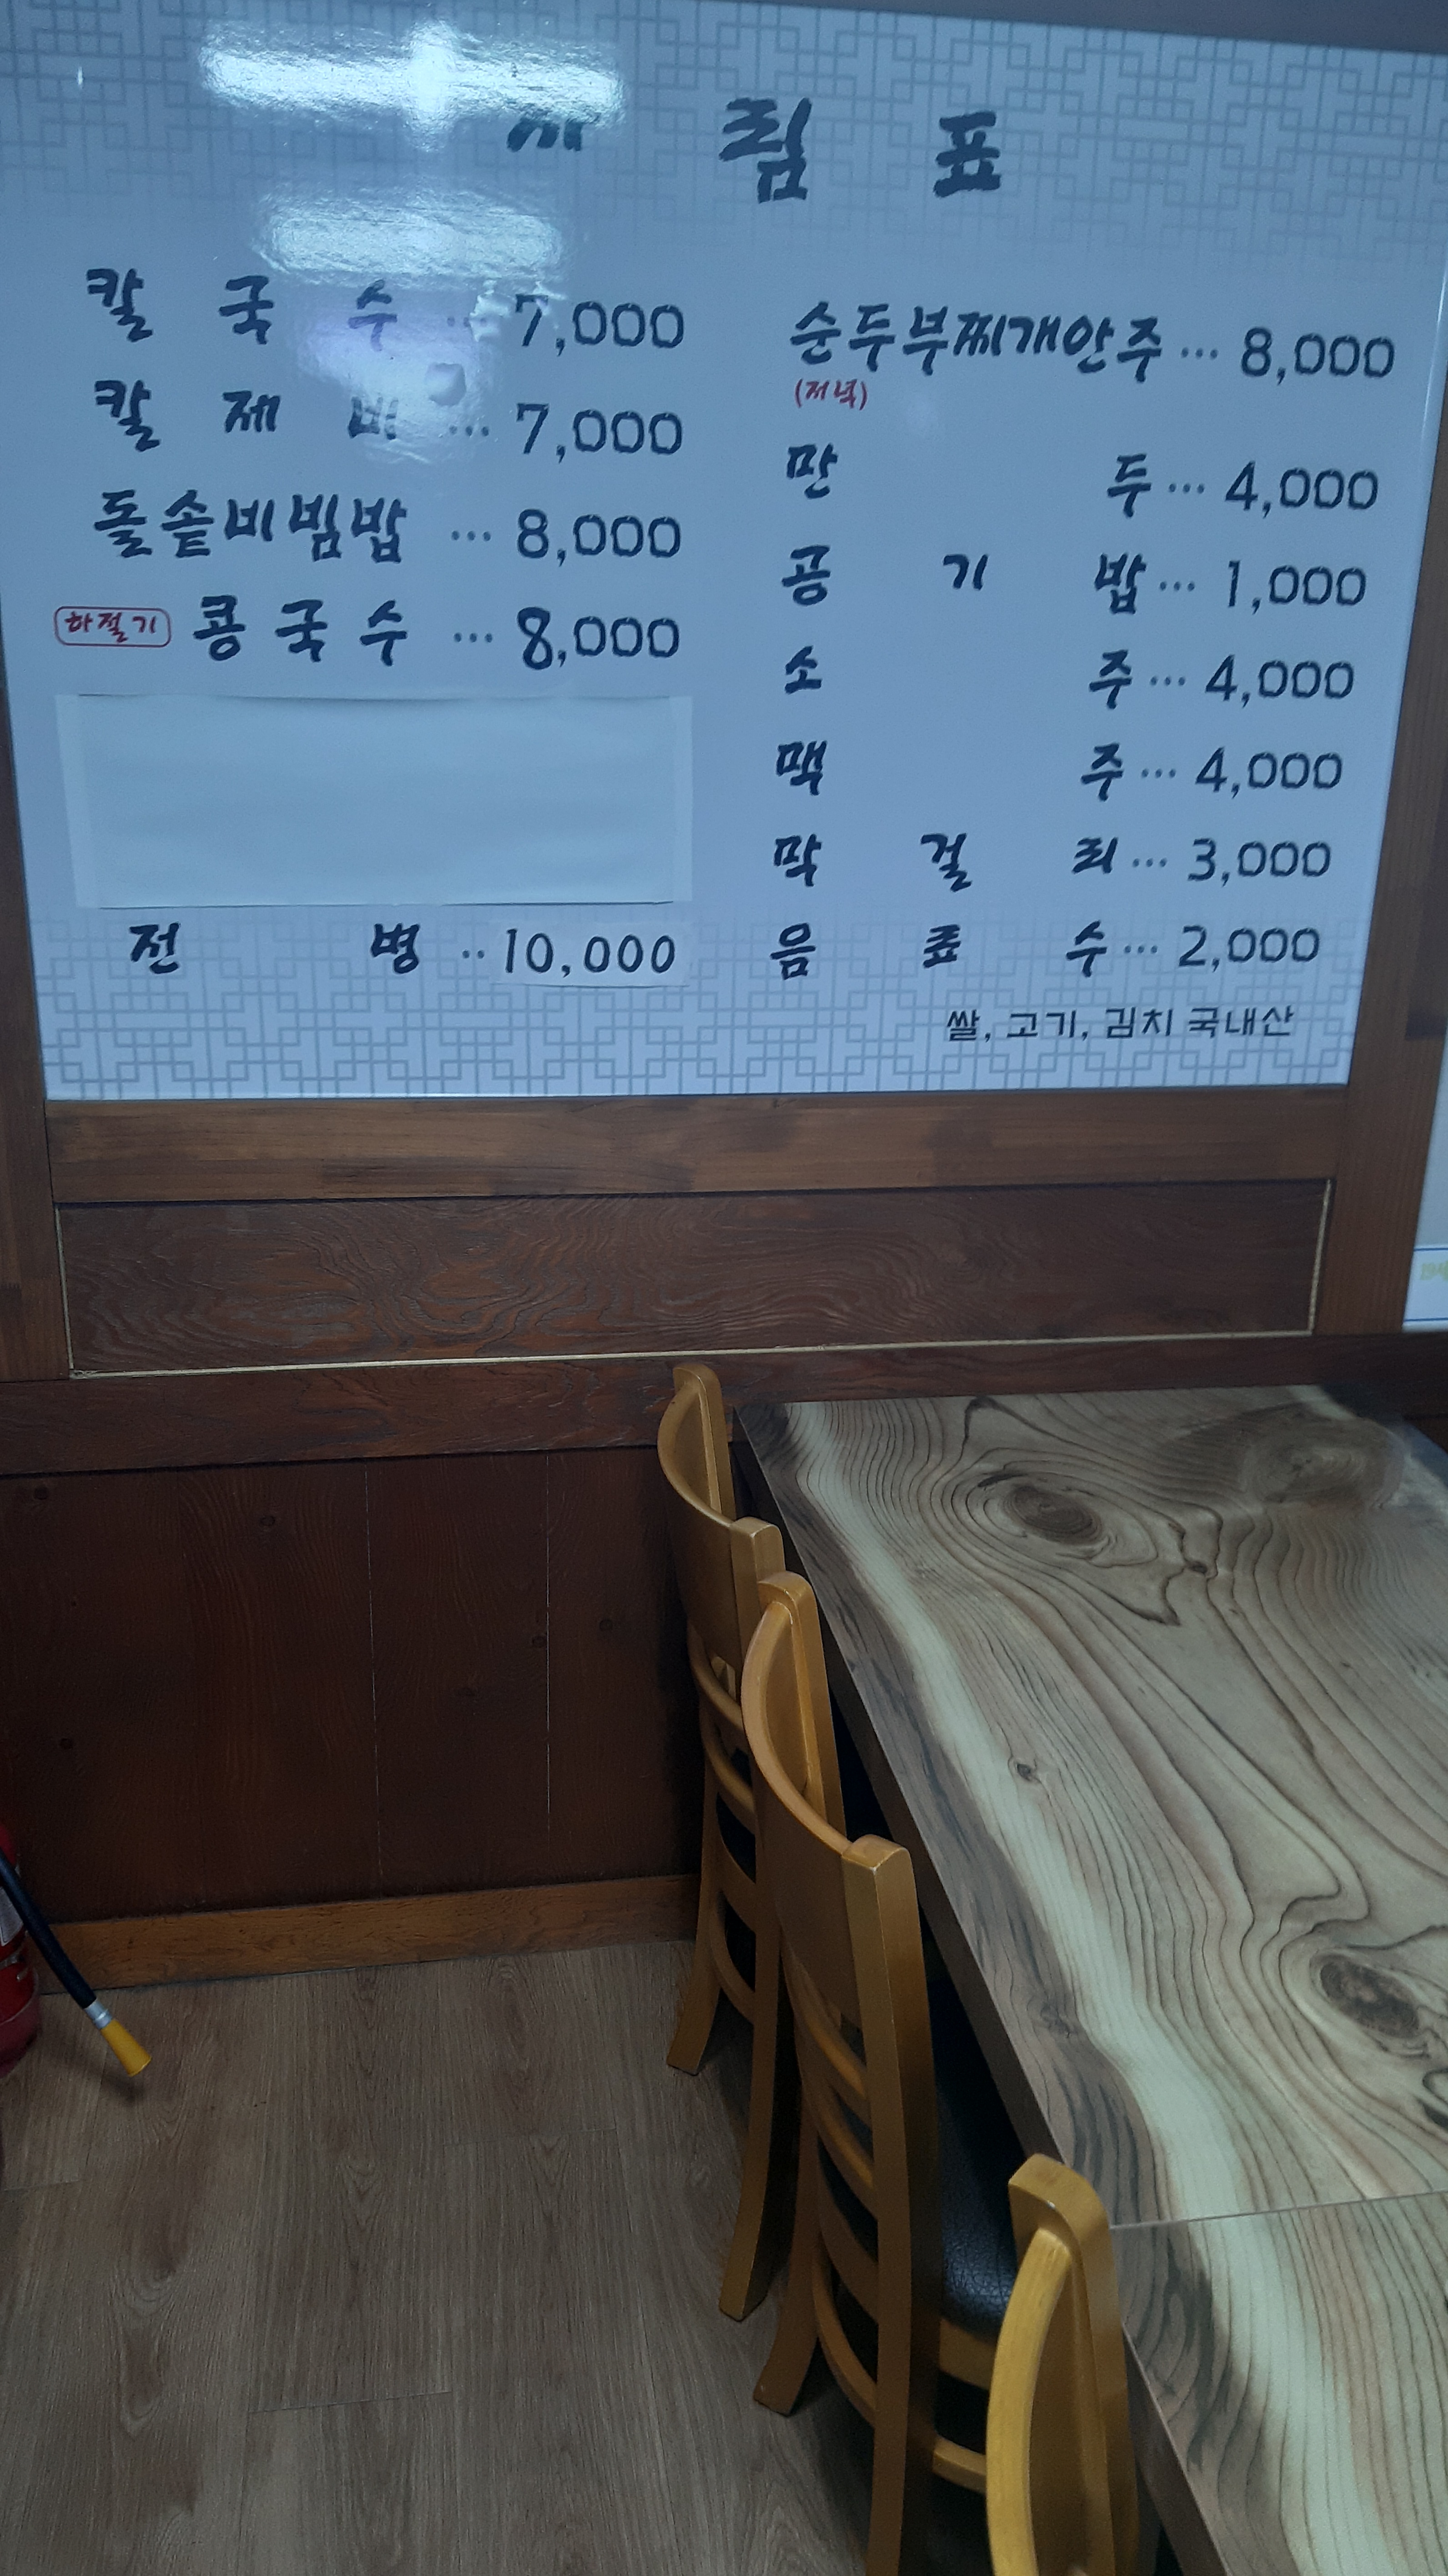 림 표
칼 국 수 ... 7,000
칼 제 비 ... 7,000
돌솥비빔밥 ... 8,000
하절기 콩 국 수 ... 8,000
전 병 .. 10,000
순두부찌개안주 ... 8,000
(저녁)
만 두 ... 4,000
공 기 밥 ... 1,000
소 주 ... 4,000
맥 주 ... 4,000
막 걸 리 ... 3,000
음 료 수 ... 2,000
쌀, 고기, 김치 국내산